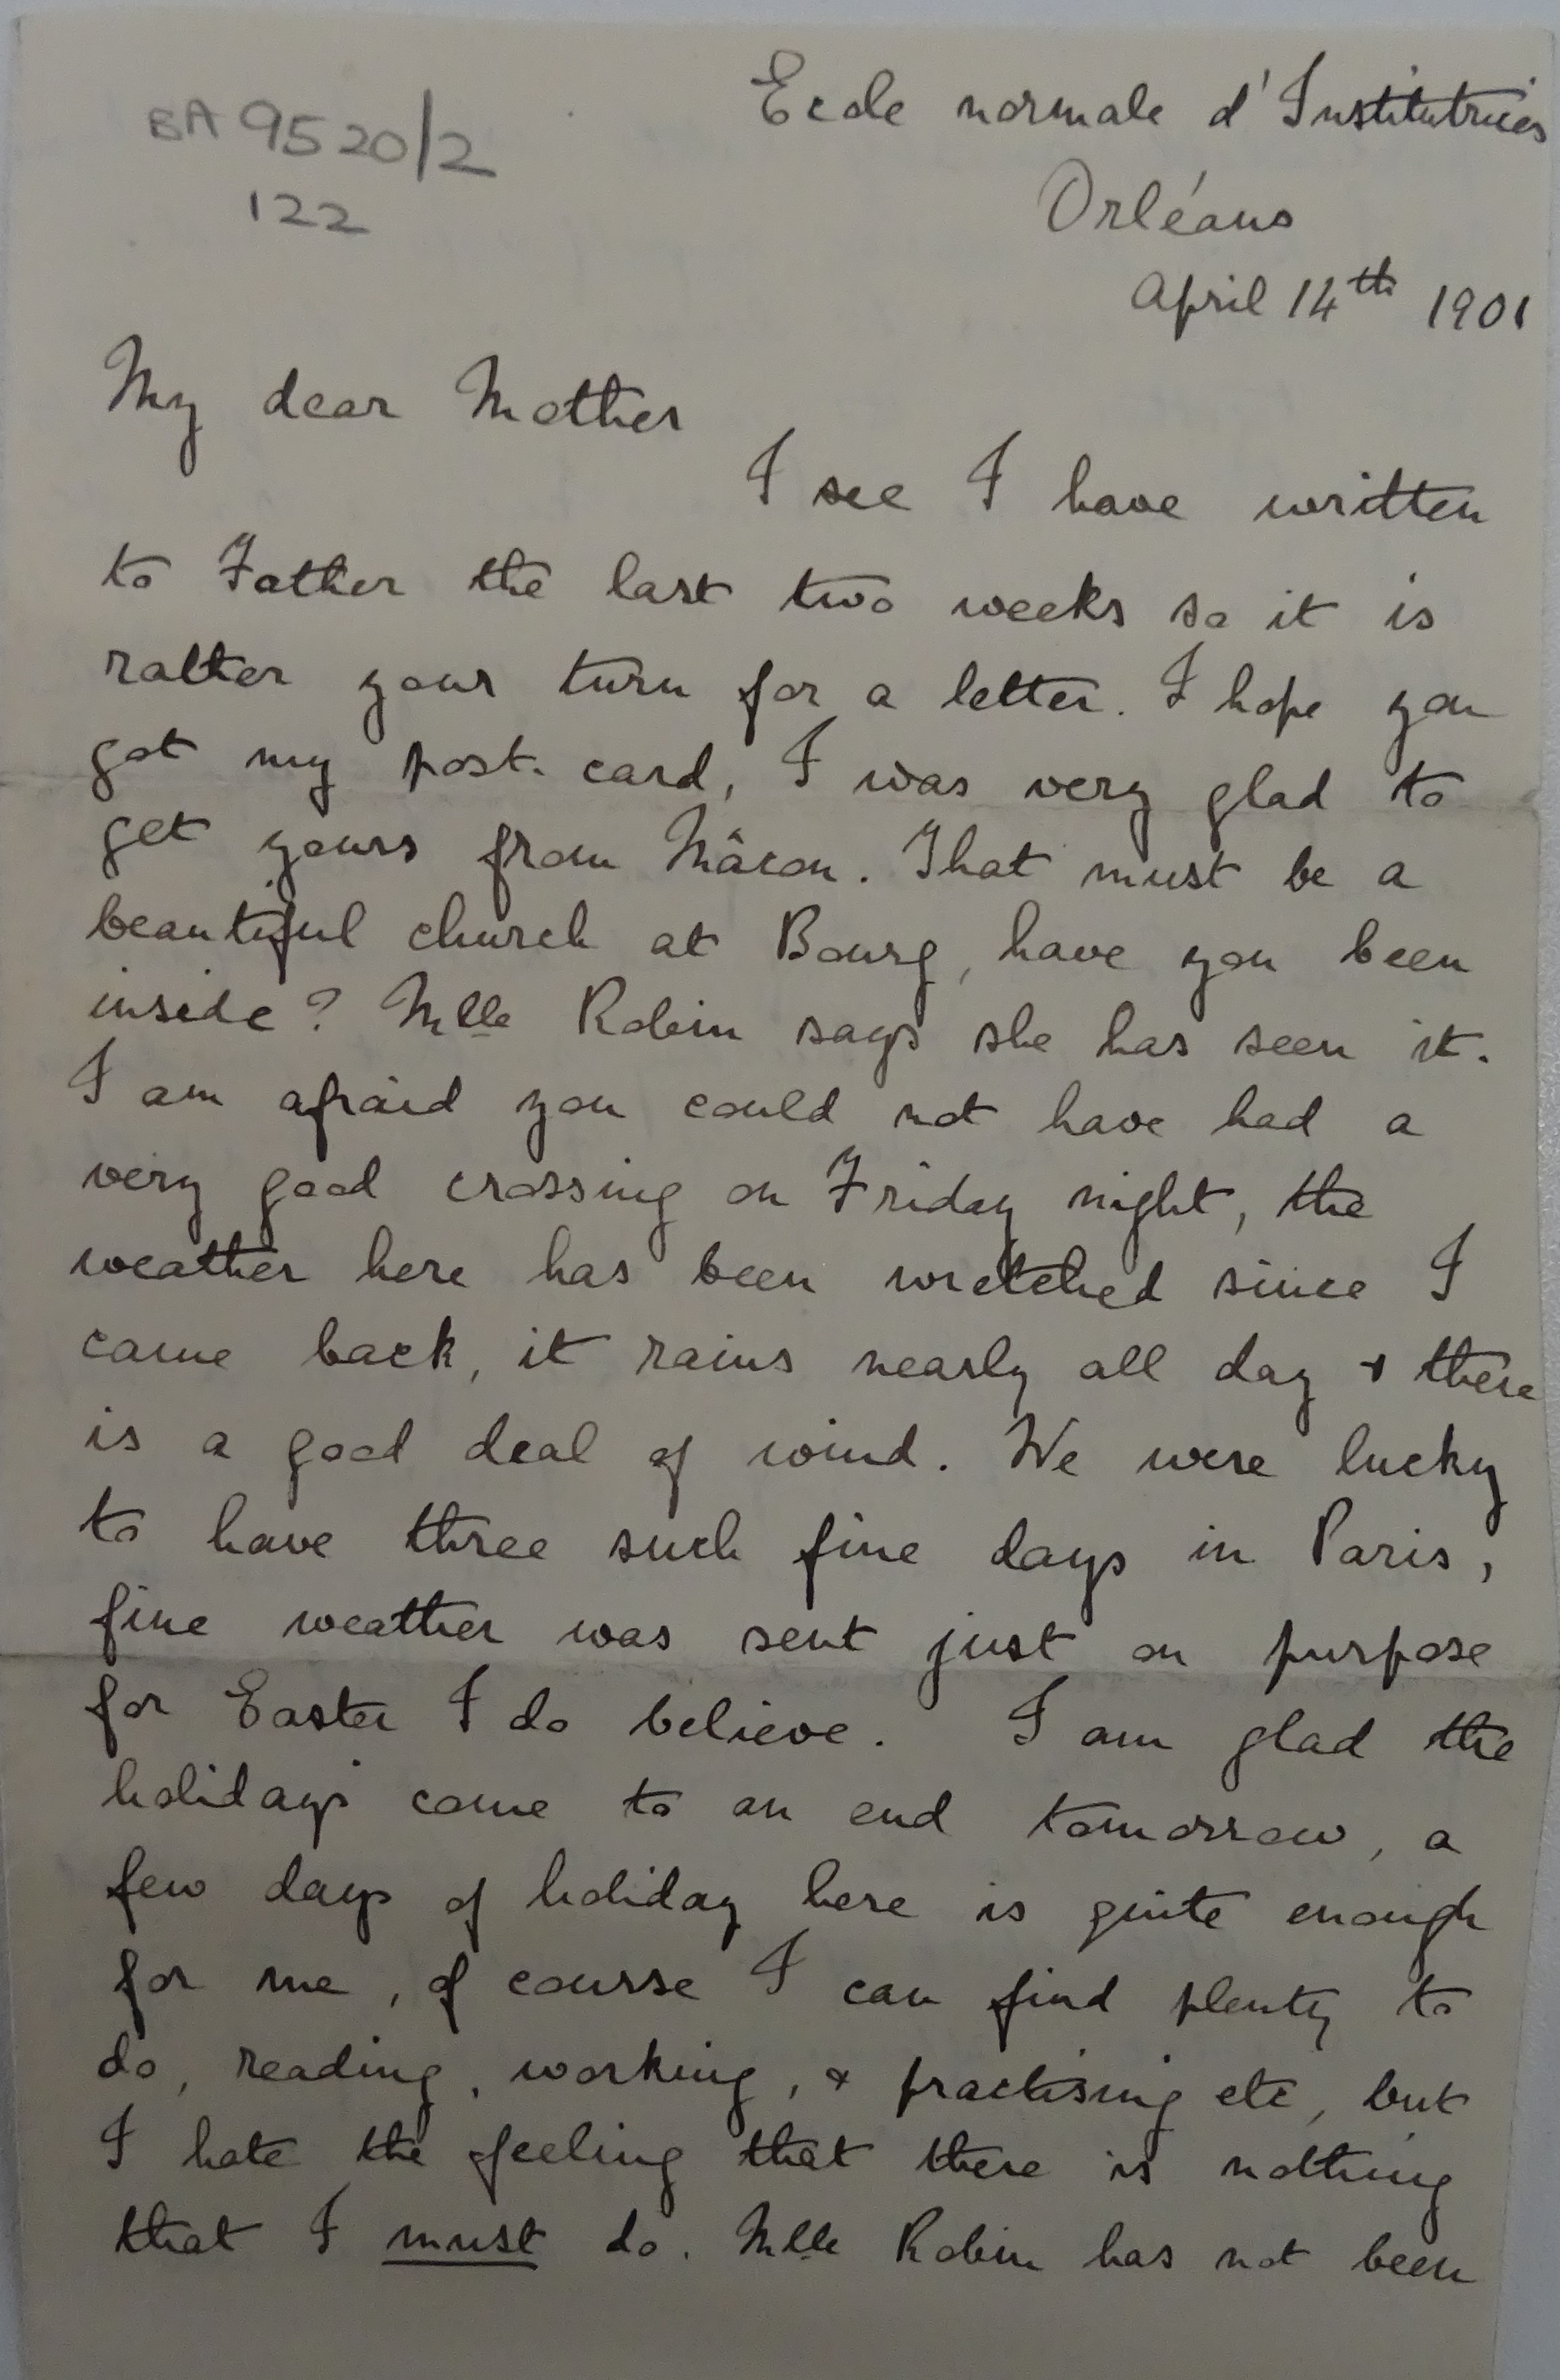 BA 9520/2
122
Ecole normale d'Institutrices
Orléans
April 14th 1901
My dear Mother
I see I have written
to Father the last two weeks so it is
rather your turn for a letter. I hope you
got my post-card, I was very glad to
get yours from Mâcon. That must be a
beautiful church at Bourg, have you been
inside? Mlle Robin says she has seen it.
I am afraid you could not have had a
very good crossing on Friday night, the
weather here has been wretched since I
came back, it rains nearly all day + there
is a good deal of wind. We were lucky
to have three such fine days in Paris,
fine weather was sent just on purpose
for Easter I do believe. I am glad the
holidays come to an end tomorrow, a
few days of holiday here is quite enough
for me, of course I can find plenty to
do, reading, working, + practising etc, but
I hate the feeling that there is nothing
that I must do. Mlle Robin has not been